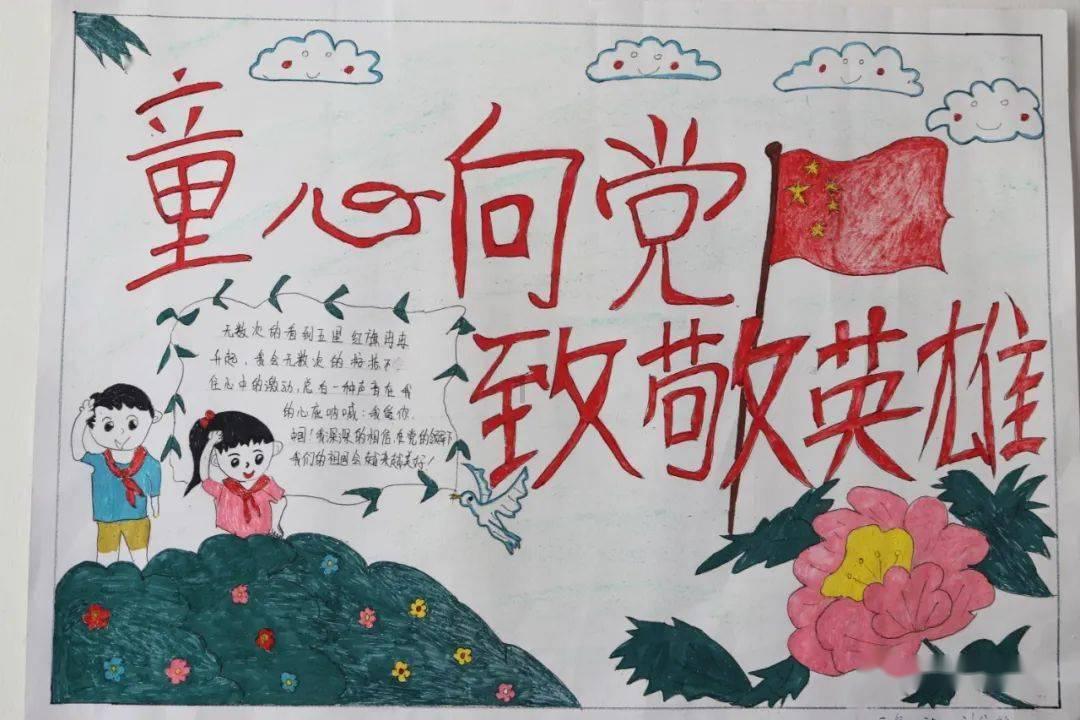 童心向党
致敬英雄
无数次的看到五星红旗冉冉
升起，我会无数次的按捺不
住心中的激动，总有一种声音在我
的心底呐喊：我爱你，
祖国！我深深的相信，在党的领导下
我们的祖国会越来越美好！